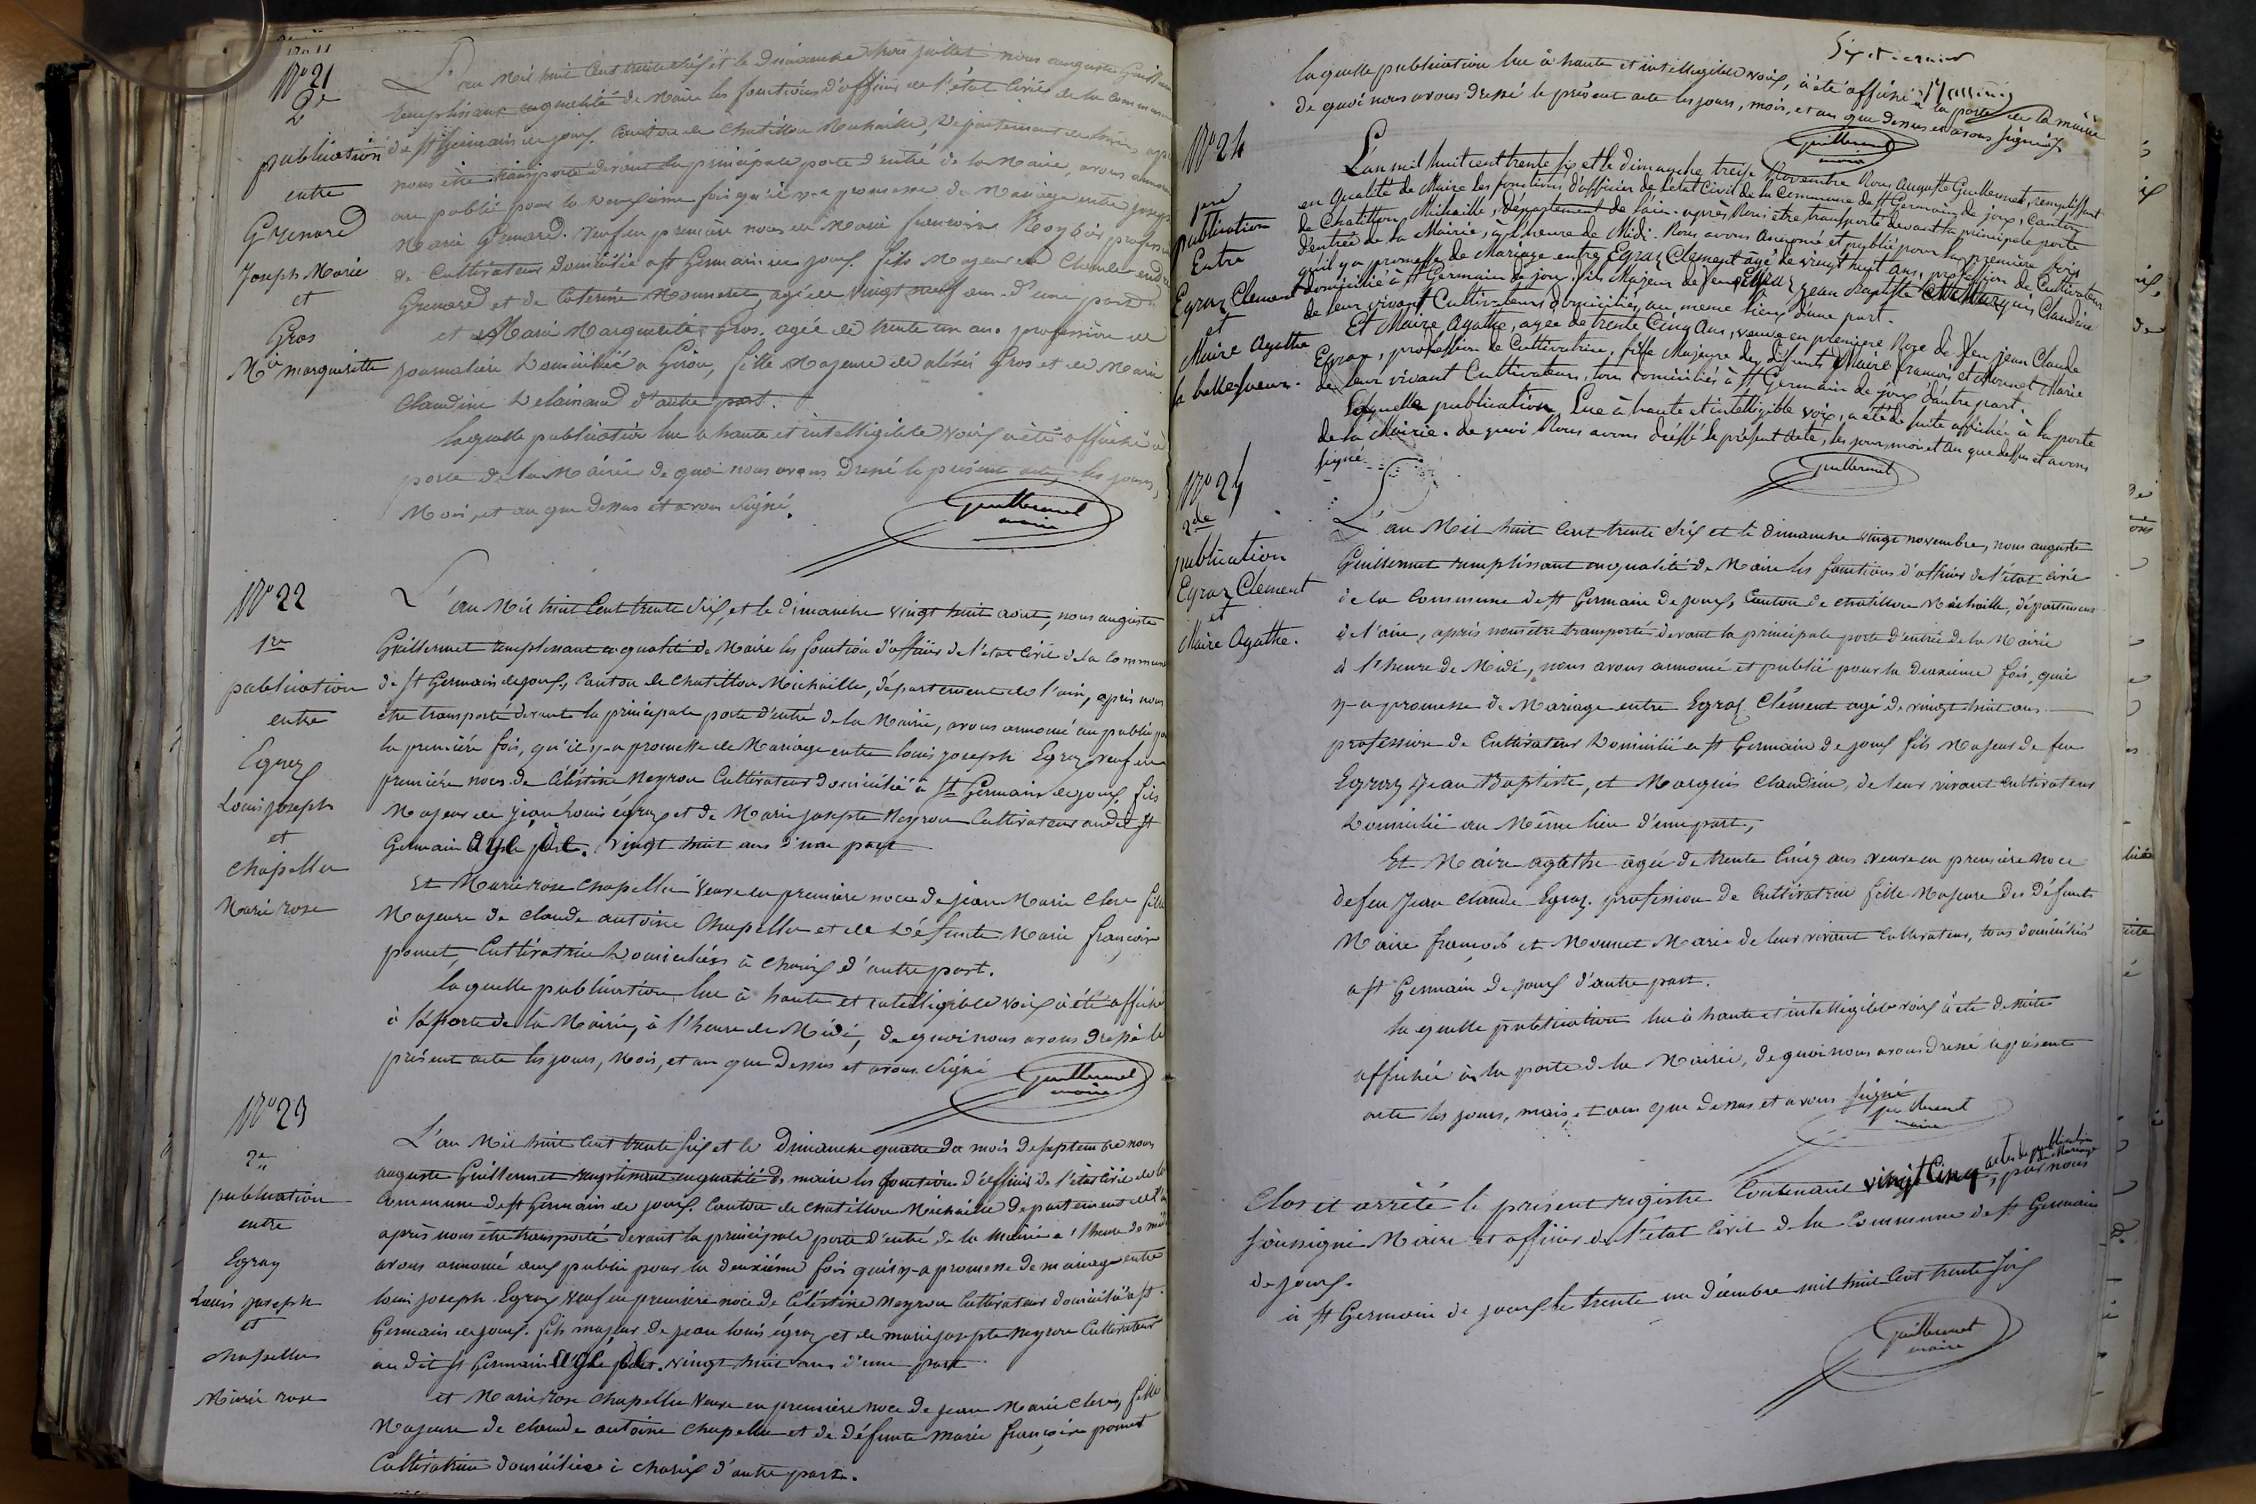 N° 21
2e
publication
entre
Grenard
Joseph Marie
et
Gros
Mie marguerite
L'an Mil huit Cent trente Six et le Dimanche trois juillet nous auguste Guillermet
remplissant en qualité de Maire les fonctions d'officier de l'état Civil de la Commune
de St Germain de joux, Canton de Chatillon Michaille, Département de l'ain, après
nous être transporté devant la principale porte d'entré de la Mairie, avons annoncé
au public pour la deuxième fois qu'il y-a promesse de Mariage entre joseph
Marie Grenard. veuf en première noces de Marie francoise profession
de Cultivateur Domicilié a St Germain de joux. fils Majeur de
Grenard et de Caterine Mermeret, agé de vingt neuf ans. D'une part
et Marie Marguerite Gros. agée de trente un ans. profession de
journalière Domiciliée a Giron, fille Majeure de aléxis Gros et de Marie
Claudine d'autre part.
laquelle publication lue a haute et intelligible voix a été affichée à
porte de la Mairie de quoi nous avons Dressé le présent acte, les jours,
Mois, et an que Dessus et avons Signé.
Guillermet
maire
N° 22
1re
publication
entre
Egraz
Louis joseph
et
Chapellu
Marie rose
L'an Mil huit Cent trente Six, et le Dimanche vingt huit aout, nous auguste
Guillermet remplissant en qualité de Maire les fonction d'officier de l'état Civil de la Commune
de St Germain de joux, Canton de Chatillon Michaille, département de l'ain, après nous
etre transporté devant la principale porte d'entré de la Mairie, avons annoncé au public pour
la première fois, qu'il y-a promesse de Mariage entre louis joseph Egraz veuf en
première noces de Céléstine Neyron Cultivateur domicilié à St Germain de joux, fils
Majeur de jean louis égraz et de Marie josepte Neyron Cultivateur audit St
Germain agé de. vingt huit ans d'une part
Et Marie rose Chapellu Veuve en première noce de jean Marie Clerc fille
Majeure de Claude antoine Chapellu et de Défunte Marie françoise
ponnet, Cultivatrice Domiciliées à Charix d'autre part.
laquelle publication lue à haute et intelligible voix à été affiché
à la porte de la Mairie, à l'heure de Midi, de quoi nous avons Dréssé le
présent acte les jours, Mois, et an que Dessus et avons Signé
Guillermet
maire
N° 23
2e
publication
entre
Egraz
Louis joseph
et
Chapellu
Marie rose
L'an Mil huit Cent trente Six et le Dimanche quatre du mois de Septembre nous
auguste Guillermet remplissant en qualité de maire les fonctions d'officier de l'état Civil de la
Commune de St Germain de joux, Canton de Chatillon Michaille département de l'ain
après nous être transporté devant la principale porte d'entré de la Mairie a l'heure de midi
avons annoncé aux public pour la deuxième fois qu'il y-a promesse de mariage entre
louis joseph Egraz veuf en première noce de Céléstine Neyron Cultivateur domicilié à St
Germain de joux. fils majeur de jean louis égraz et de marie josepte Neyron Cultivateur
au dit St Germain agé de. vingt huit ans d'une part
et Marie rose Chapellu Veuve en première noce de jean Marie Clerc, fille
Majeure de Claude antoine Chapellu et de défunte Marie françoise ponnet
Cultivatrice domiciliée à Charix d'autre part.
laquelle publication lue à haute et intelligible voix, à été affiché à la porte de la mairie
de quoi nous avons dressé le présent acte les jours, mois, et an que dessus et avons Signé.
Guillermet
maire
N° 24
pre
Publication
Entre
Egraz Clement
et
Maire Agathe
sa belle soeur.
L'an mil huit cent trente six et le dimanche treize Novembre Nous Auguste Guillermet, remplissant
en Qualité de Maire les fonctions d'officier de l'etat Civil de la Commune de St Germain de joux, Canton
de Chatillon Michaille, département de l'ain. après Nous être transporté devant la principale porte
d'entrée de la Mairie, à l'heure de Midi. Nous avons Annoncé et publié pour la première fois
qu'il y a promesse de Mariage entre Egraz Clement agé de vingt huit ans, profession de Cultivateur
domicilié à St Germain de joux, fils Majeur de feu Egraz Jean Baptiste et Marquis Claudine
de leur vivant Cultivateurs domiciliés, au meme lieu, d'une part.
Et Maire Agathe, agee de trente Cinq Ans, veuve en premiere Noce de feu jean Claude
Egraz, profession de Cultivatrice, fille Majeure des défunts Maire francois et Mermet Marie
de leur vivant Cultivateurs, tous domiciliés à St Germain de joux d'autre part.
Laquelle publication Lue à haute et intelligible voix, a été de suite affichée à la porte
de la Mairie. de quoi Nous avons dréssé le présent Acte, les jour, mois et an que dessus et avons
signé.
Guillermet
N° 25
2de
publication
Egraz Clement
et
Maire Agathe.
L'an Mil huit Cent trente Six et le dimanche vingt novembre, nous auguste
Guillermet remplissant en qualité de Maire les fonctions d'officier de l'état Civil
de la Commune de St Germain de joux, Canton de Chatillon Michaille, département
de l'ain, après nous être transporté devant la principale porte d'entrée de la Mairie
à l'heure de Midi, nous avons annoncé et publié pour la deuxième fois, qu'il
y-a promesse de Mariage entre Egraz Clément agé de vingt huit ans
profession de Cultivateur Domicilié a St Germain de joux fils Majeur de feu
Egraz Jean Baptiste, et Marquis Claudine, de leur vivant Cultivateur
Domicilié au Même lieu d'une part,
Et Maire agathe agée de trente Cinq ans veuve en première noce
de feu Jean Claude Egraz. profession de Cultivatrice fille Majeure des Défunts
Maire françois et Mermet Marie de leur vivant Cultivateur, tous domiciliés
a St Germain de joux d'autre part.
la quelle publication lue à haute et intelligible voix à été de suite
affichée à la porte de la Mairie, de quoi nous avons Dressé le présent
acte les jours, mois, et an que Dessus et avons Signé
Guillermet
maire
Clos et arrêté le présent registre Contenant vingt Cinq actes de publication
de Mariage, par nous
soussigné Maire et officier de l'état Civil de la Commune de St Germain
de joux.
à St Germain de joux le trente un décembre mil huit Cent trente Six
Guillermet
maire